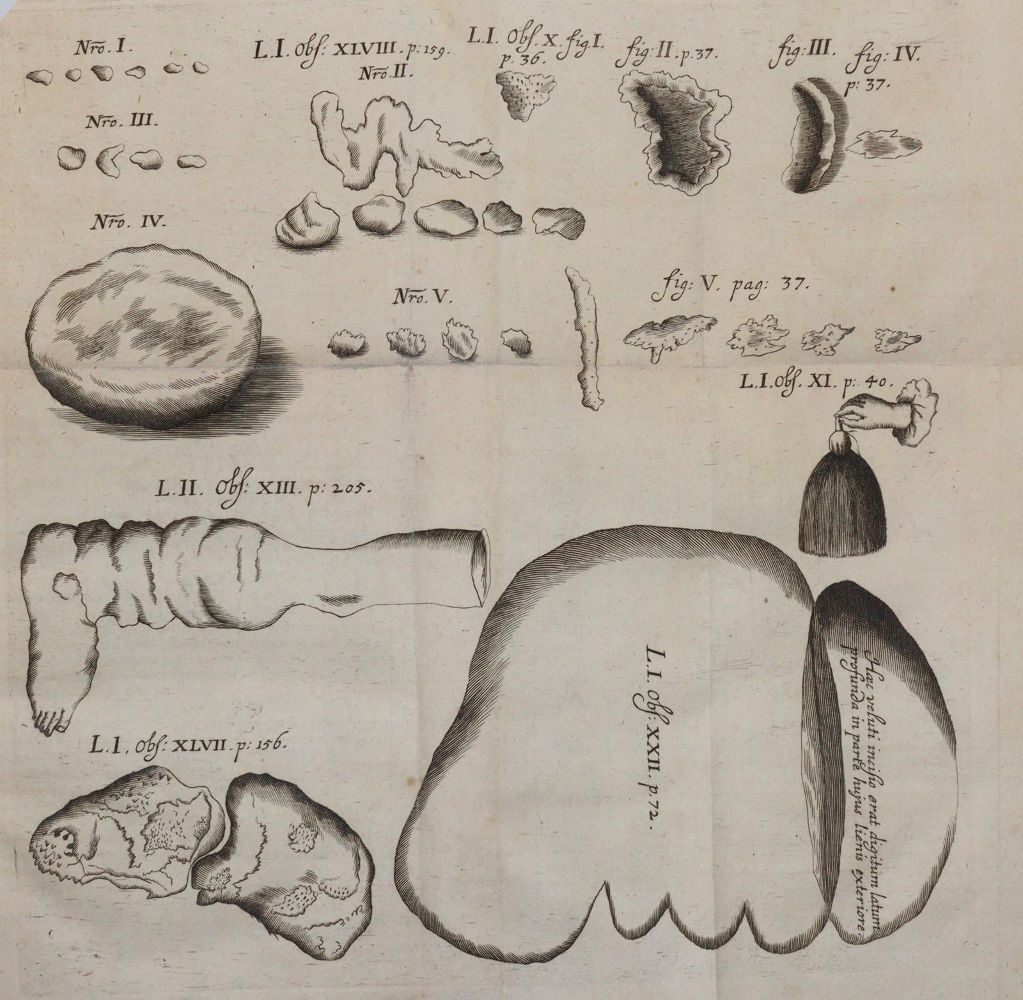 Nr̄o. I.
L. I. Obſ: XLVIII. p: 159.
Nr̄o. II.
L. I. Obſ: X. fig I.
p. 36.
fig: II. p. 37.
fig: III.
fig: IV.
p: 37.
Nr̄o. III.
Nr̄o. IV.
Nr̄o. V.
fig: V. pag: 37.
L. I. Obſ. XI. p: 40.
L. II. Obſ: XIII. p: 205.
L. I. Obſ: XXII. p. 72.
Hæc veluti inciſio erat digitum latum
profunda in parte hujus lienis exteriore.
L. I. Obſ: XLVII. p: 156.